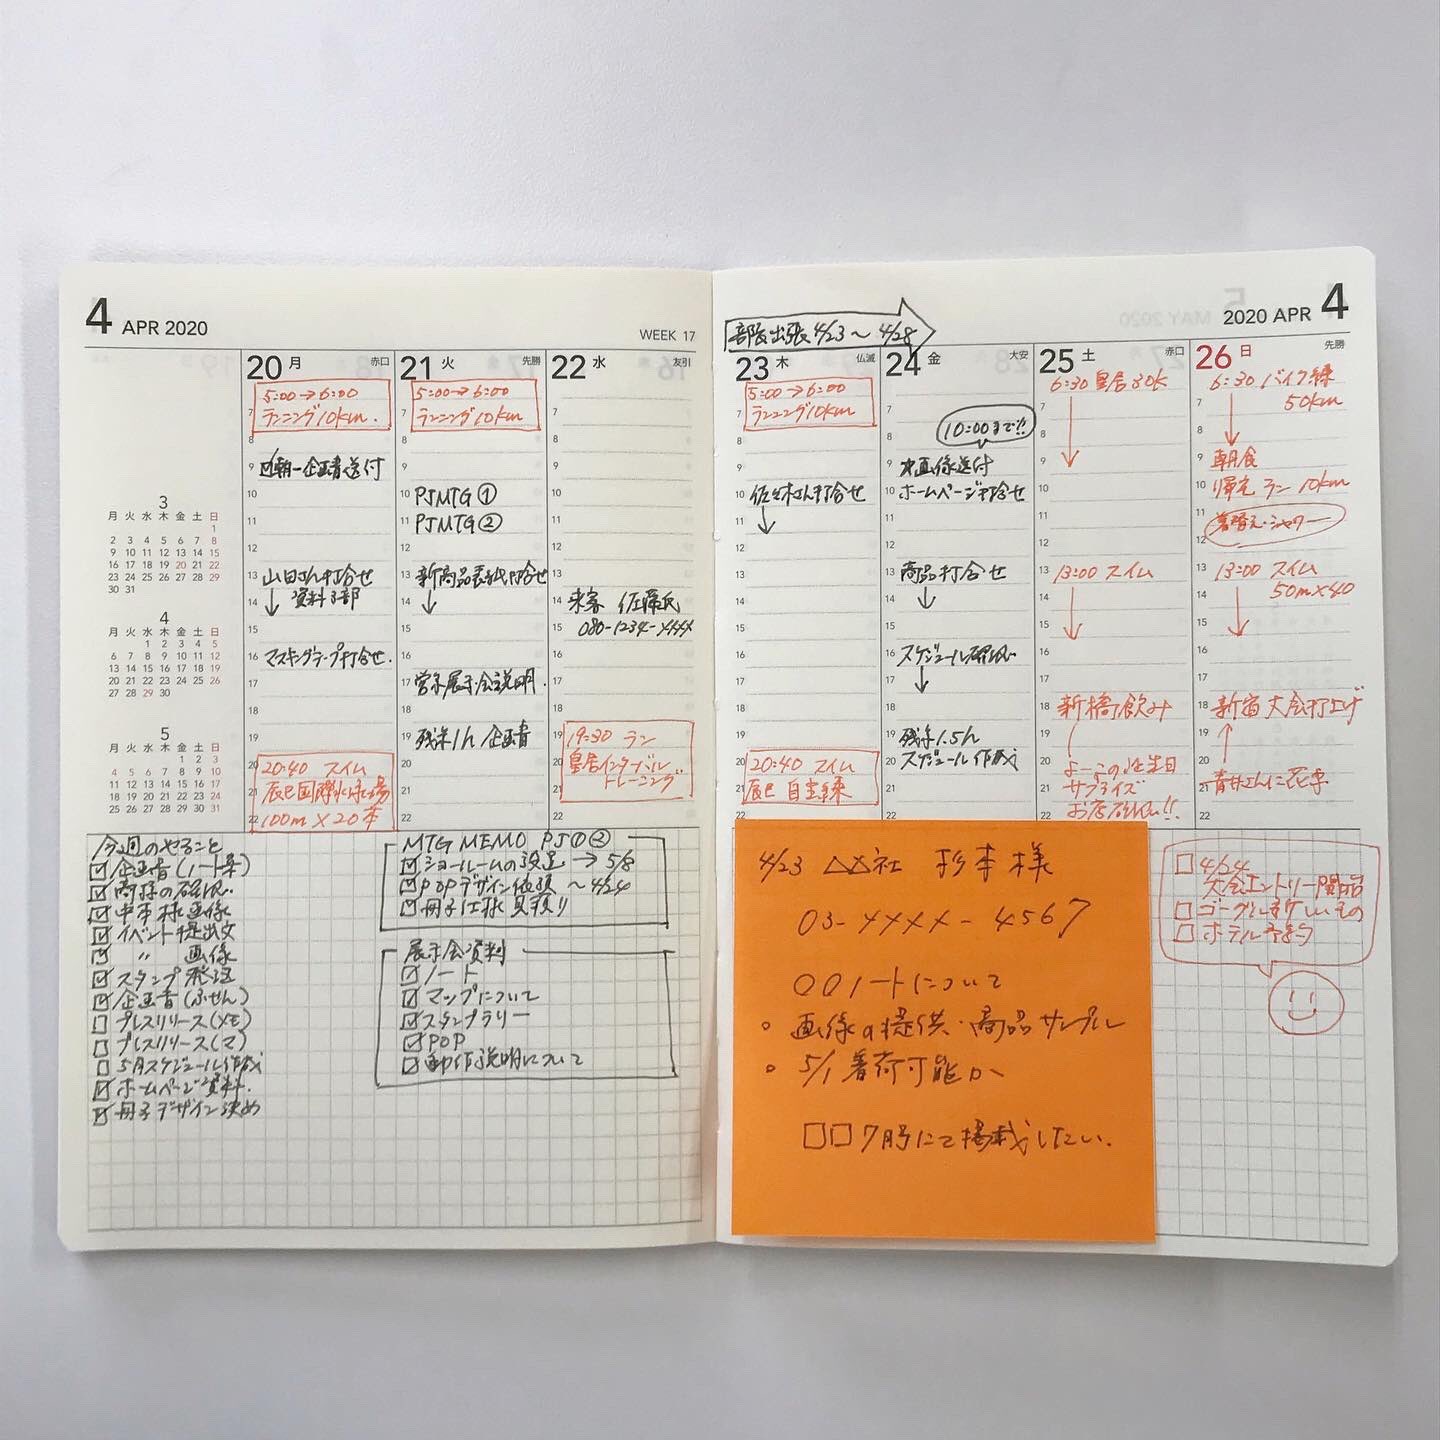 4 APR 2020
WEEK 17
3
月 火 水 木 金 土 日
1
2 3 4 5 6 7 8
9 10 11 12 13 14 15
16 17 18 19 20 21 22
23 24 25 26 27 28 29
30 31
4
月 火 水 木 金 土 日
1 2 3 4 5
6 7 8 9 10 11 12
13 14 15 16 17 18 19
20 21 22 23 24 25 26
27 28 29 30
5
月 火 水 木 金 土 日
1 2 3
4 5 6 7 8 9 10
11 12 13 14 15 16 17
18 19 20 21 22 23 24
25 26 27 28 29 30 31
20 月 赤口
5:00→6:00
ランニング10km.
7
8
9 朝一企画書送付
10
11
12
13 山田さん打合せ
14 資料3部
15
16 マスキングテープ打合せ.
17
18
19
20 20:40 スイム
21 辰巳国際水泳場
22 100m×20本
21 火 先勝
5:00→6:00
ランニング10km
7
8
9
10 PJMTG①
11 PJMTG②
12
13 新商品表紙打合せ
14
15
16
17 営業展示会説明.
18
19 残業1h 企画書
20
21
22
22 水 友引
7
8
9
10
11
12
13
14 来客 佐藤氏
15 080-1234-xxxx
16
17
18
19 19:30 ラン
20 皇居インターバル
トレーニング
21
22
部長出張4/23〜4/28
2020 APR 4
23 木 仏滅
5:00→6:00
ランニング10km
7
8
9
10 佐々木さん打合せ
11
12
13
14
15
16
17
18
19
20 20:40 スイム
21 辰巳 自主練
22
24 金 大安
7
8 10:00まで!!
9 画像送付
10 ホームページ打合せ
11
12
13 商品打合せ
14
15
16 スケジュール確認
17
18
19 残業1.5h
20 スケジュール作成
21
22
25 土 赤口
6:30 皇居30K
7
8
9
10
11
12
13 13:00 スイム
14
15
16
17
18 新橋飲み
19
20 よーこの生誕日
21 サプライズ
22 お店確認!!
26 日 先勝
6:30 バイク練
50km
7
8
9 朝食
10 帰宅 ラン 10km
11 着替え・シャワー
12
13 13:00 スイム
14 50m×40
15
16
17
18 新宿大会打上げ
19
20
21 青井さんに花束
22
今週のやること
企画書(ノート系)
商標の確認
中本様画像
イベント提出文
〃 画像
スタンプ発送
企画書(ふせん)
プレスリリース(メモ)
プレスリリース(マ)
5月スケジュール作成
ホームページ資料.
冊子デザイン決め
MTG MEMO PJ①②
ショールームの設置→5/8
POPデザイン依頼 〜4/24
冊子仕様見積り
展示会資料
ノート
マップについて
スタンプラリー
POP
動作説明について
4/23 △△社 杉本様
03-XXXX-4567
○○ノートについて
画像の提供・商品サンプル
5/1 着荷可能か
□□7月号にて掲載したい.
4/24
大会エントリー開始
ゴーグル新しいもの
ホテル予約